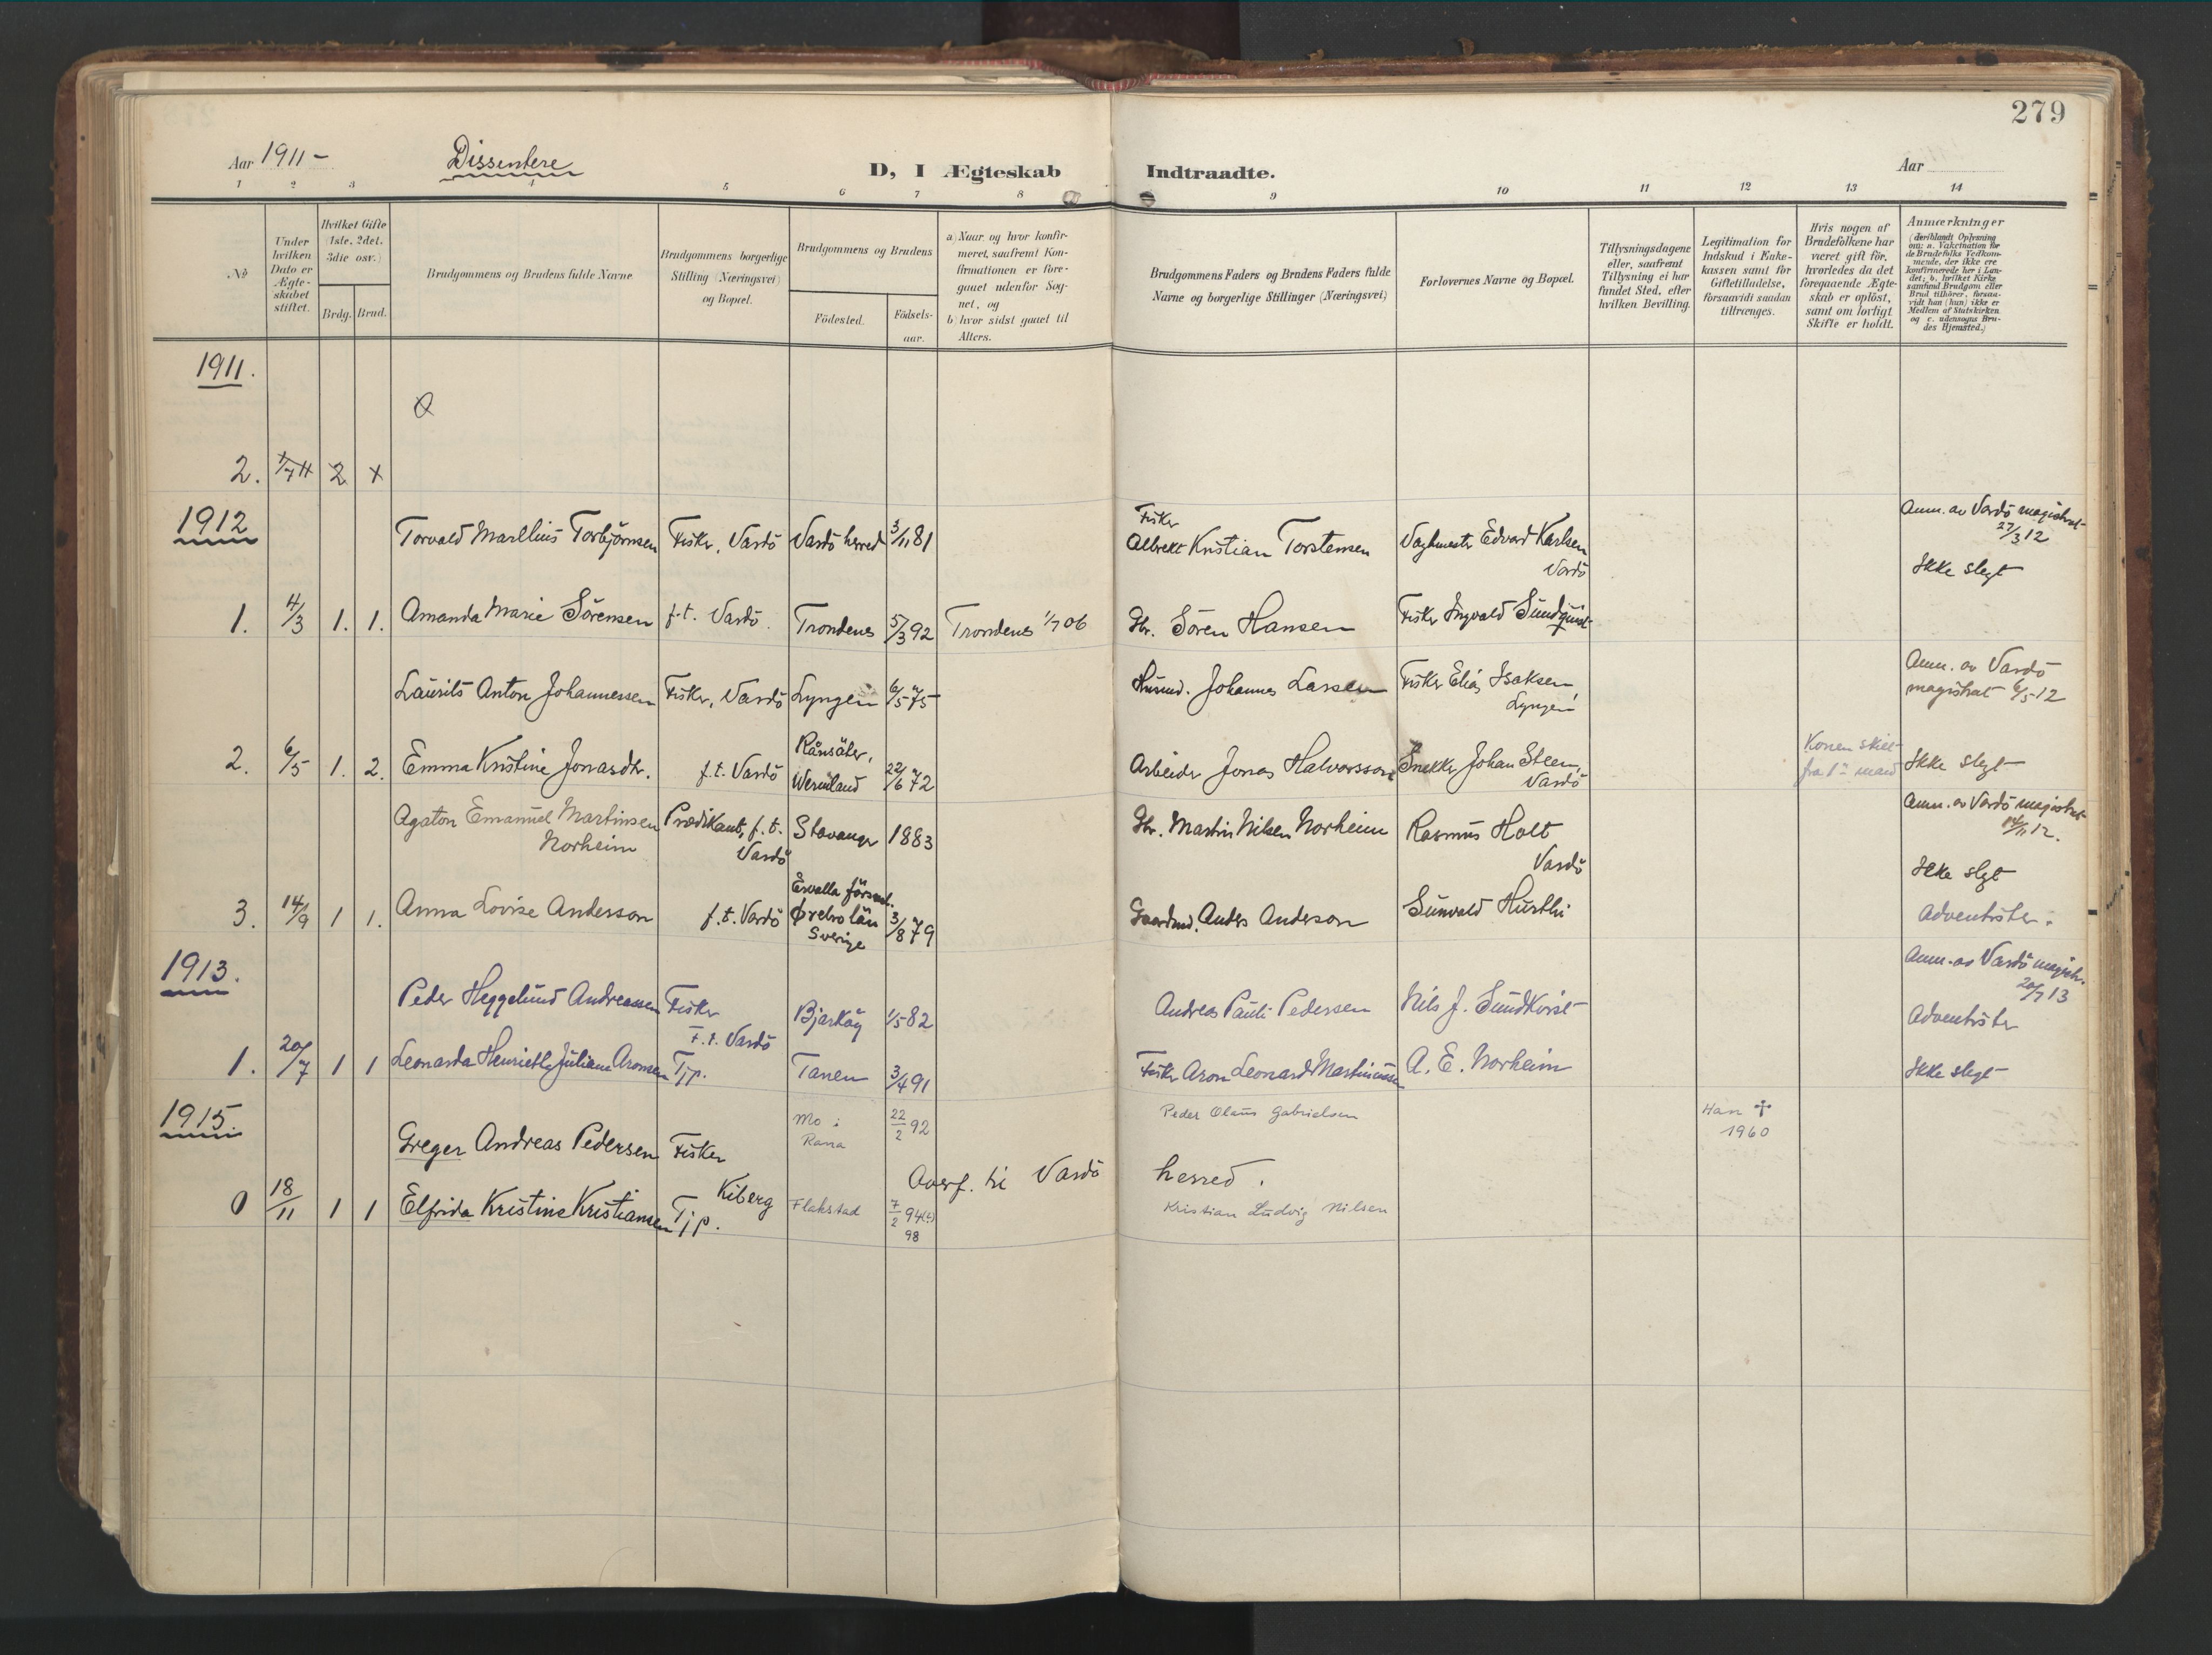 279
Aar 1911 –
Dissentere
D, I Ægteskab Indtraadte.
Aar
1 2 3 4 5 6 7 8 9 10 11 12 13 14
No
Under hvilken Dato er Ægteskabet stiftet.
Hvilket Gifte (1ste, 2det, 3die osv.)
Brdg. Brud.
Brudgommens og Brudens fulde Navne
Brudgommens borgerlige Stilling (Næringsvei) og Bopæl.
Brudgommens og Brudens
Födested. Födsels-aar.
a) Naar og hvor konfirmeret, saafremt Konfirmationen er foregaaet udenfor Sognet, og
b) hvor sidst gaaet til Alters.
Brudgommens Faders og Brudens Faders fulde Navne og borgerlige Stillinger (Næringsvei)
Forlovernes Navne og Bopæl.
Tillysningsdagene eller, saafremt Tillysning ei har fundet Sted, efter hvilken Bevilling.
Legitimation for Indskud i Enkekassen samt for Giftetilladelse, forsaavidt saadan tiltrænges.
Hvis nogen af Brudefolkene har været gift før, hvorledes da det foregaaende Ægteskab er opløst, samt om lovligt Skifte er holdt.
Anmærkninger
(deriblandt Oplysning om: a. Vakcination for de Brudefolks Vedkommende, der ikke ere konfirmerede her i Landet; b. hvilket Kirkesamfund Brudgom eller Brud tilhörer, forsaavidt han (hun) ikke er Medlem af Statskirken og c. udensogns Brudes Hjemsted.)
1911.
2. 2 x
1912
Torvald Torbjörnsen Fisker, Vardö Vardö herred 3/11 81 Fisker Albrekt Kristian Torstensen Edvard Karlsen Vardö Anm. av Vardö magistrat 27/3 12
Ikke slegt
1. 4/3 1. 1. Amanda Marie Sörensen f.t. Vardö. Trondenes 5/3 92 Trondenes 1/7 06 Gbr. Sören Hansen Fisker Ingvald Sundquist
Laurits Anton Johannessen Fisker, Vardö Lyngen 6/5 75 Johannes Larsen Fisker Elias Isaksen, Lyngen Anm. av Vardö magistrat 6/5 12
2. 6/5 1. 2. Emma Kristine Jonasdtr. f.t. Vardö Ránsäter, Wermland 22/6 72 Arbeider Jonas Halvorsson Snekker Johan Steen, Vardö Konen skilt fra 1ste mand Ikke slegt
Agaton Emanuel Martinsen Norheim Prædikant, f.t. Vardö Stavanger 1883 Gbr. Martin Nilsen Norheim Rasmus Holt Vardö Anm. av Vardö magistrat 12.
Ikke slgt
3. 14/9 1 1. Anna Lovise Andersson f.t. Vardö Örebro län Sverige 3/8 79 Gaardmd. Anders Anderson Sunvald Adventister.
1913.
Peder Heggelund Andreassen Fisker F.t. Vardö Bjarköy 1/5 82 Andreas Pauli Pedersen Nils J. Sundkvist Anm. av Vardö magistr. 20/7 13
Adventister
1. 20/7 1 1 Leonarda Henriette Juliane Aronsen Tjp. Tanen 3/4 91 Fisker Aron Leonard Martinussen A. E. Norheim Ikke slegt
1915.
Greger Andreas Pedersen Fisker Mo i Rana 22/2 92 Peder Olaus Gabrielsen Han ✝ 1960
Kiberg Overf. til Vardö herred.
0 18/11 1 1 Elfrida Kristine Kristiansen Tjp. Flakstad 7/2 94(?) 98 Kristian Ludvig Nilsen